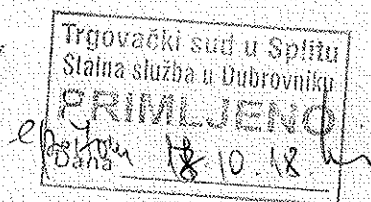 Trgovački sud u Splitu
Stalna služba u Dubrovniku
PRIMLJENO
Dana 18 10. 18.